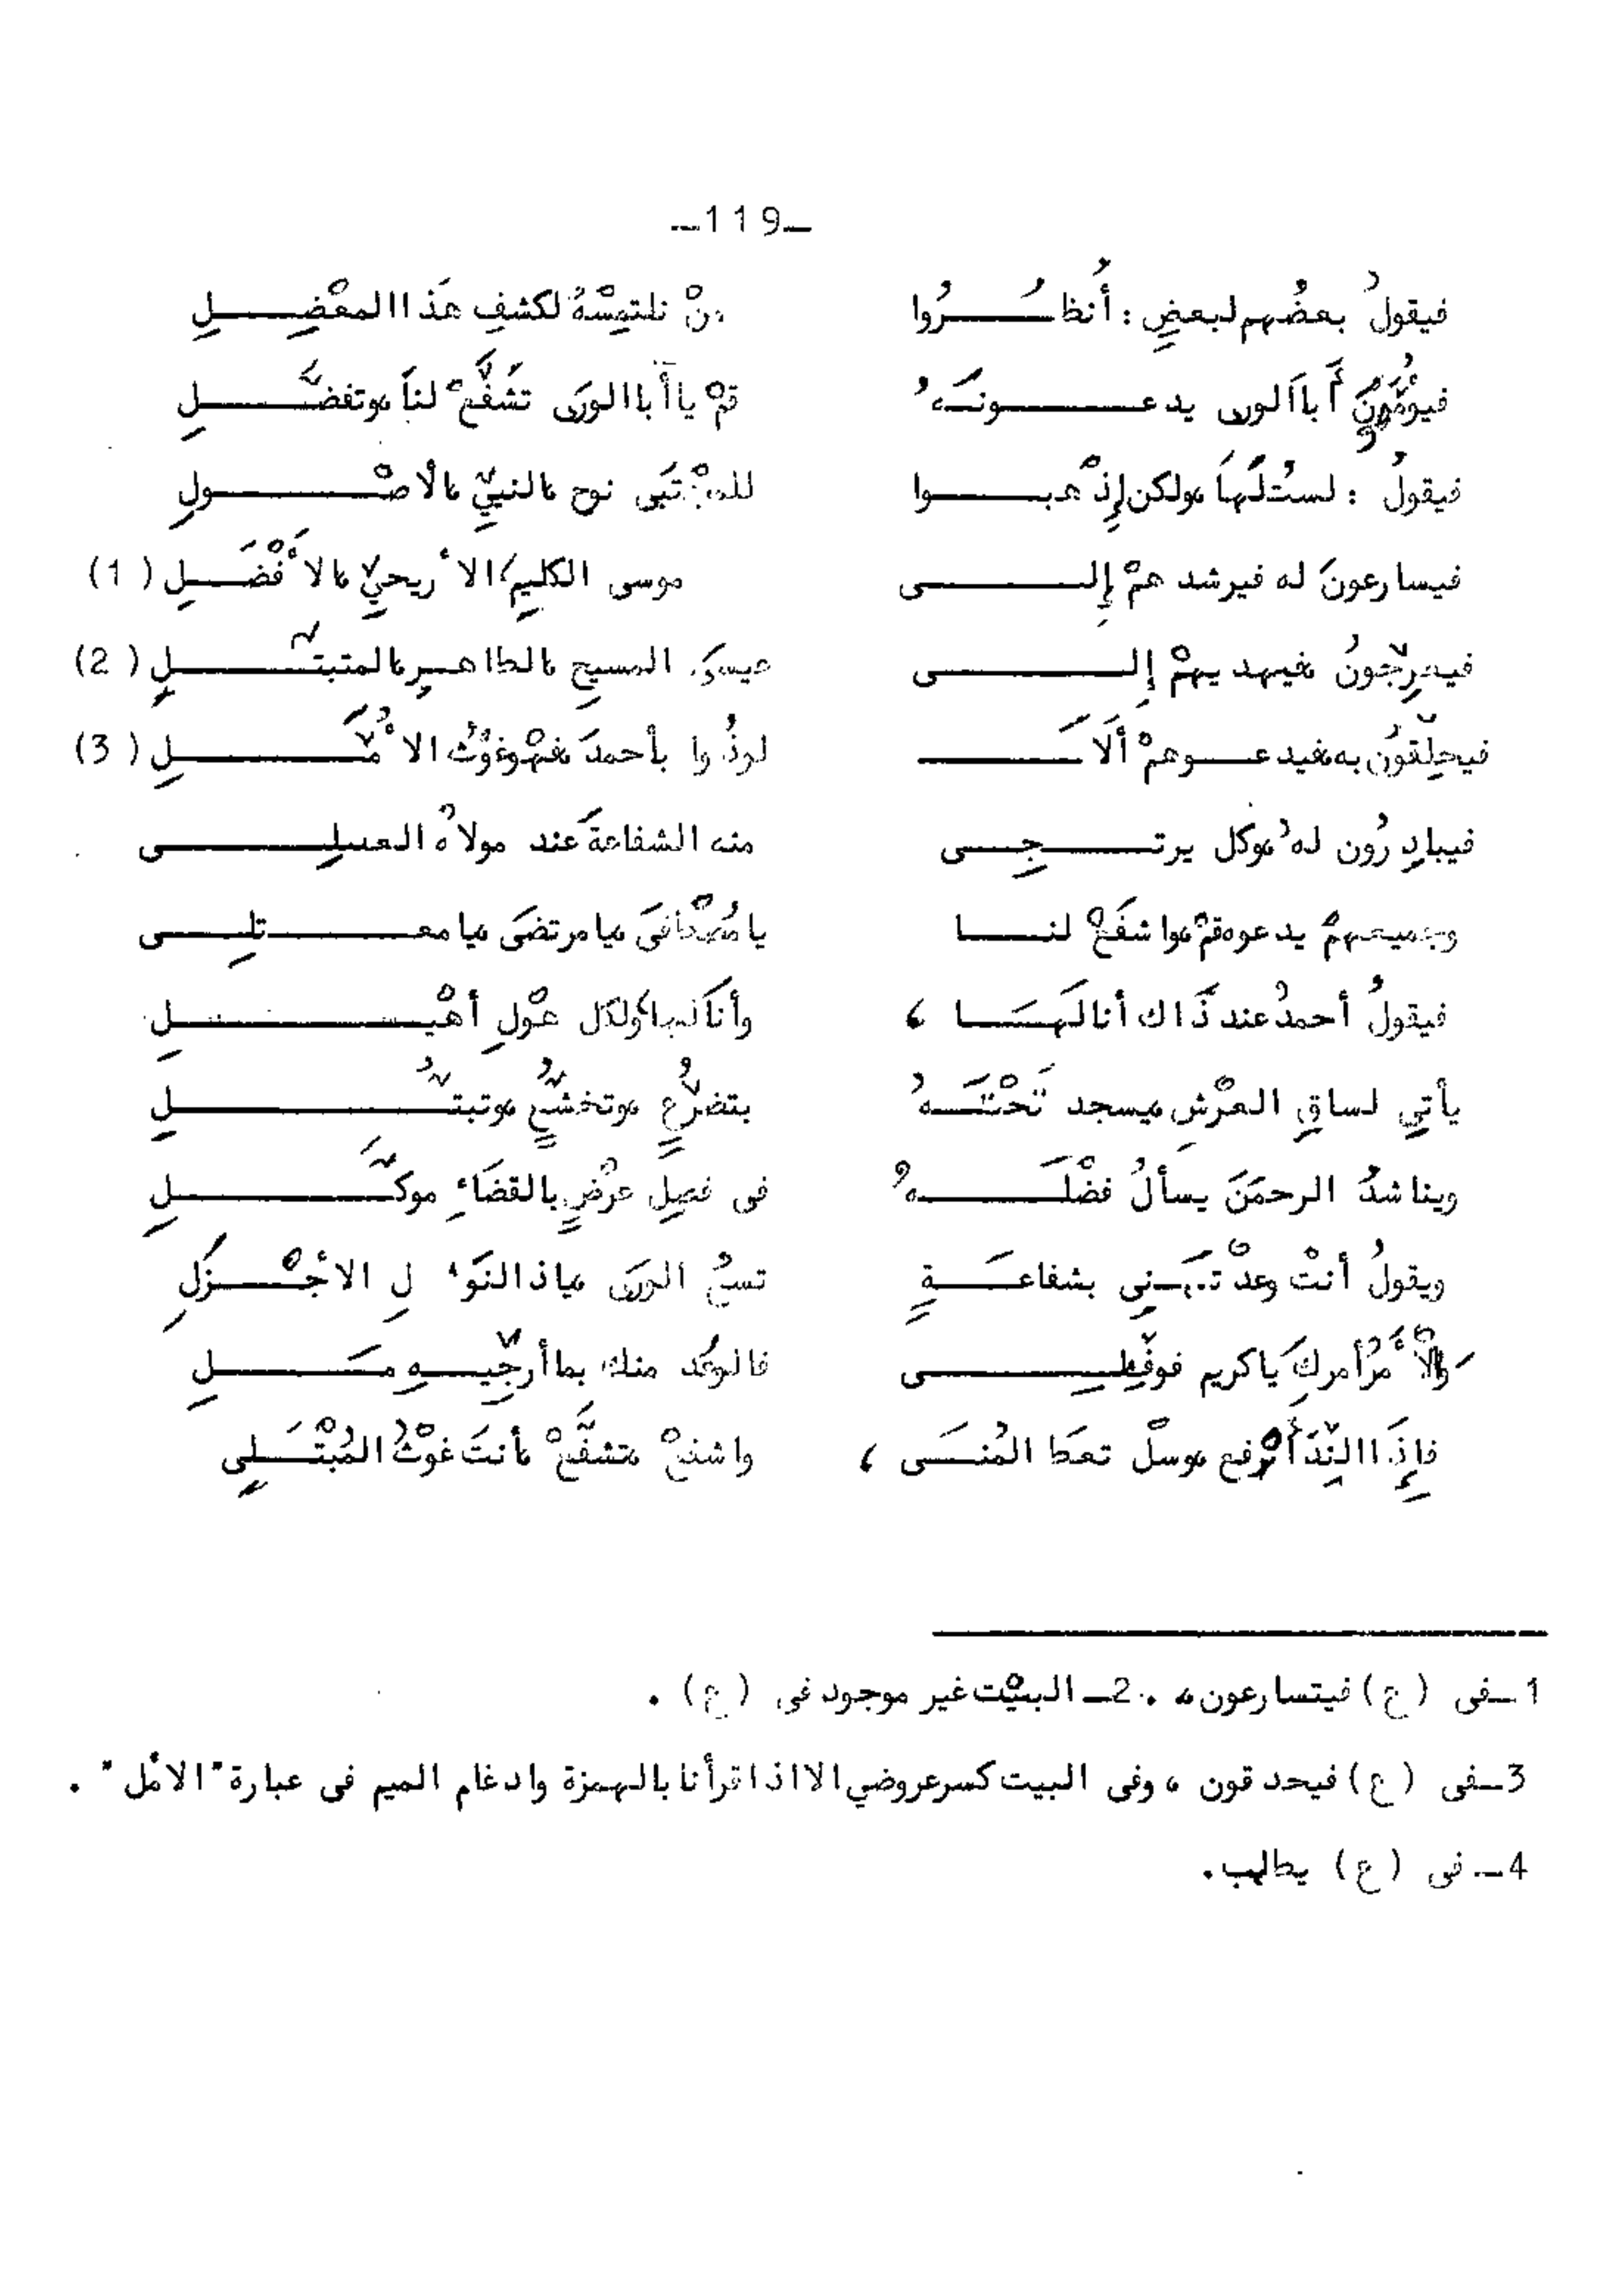 -119-
فيقولُ بعضُهم لبعضٍ : أُنظُرُوا منْ نلتمِسْهُ لكشفِ هَذا المعْضِلِ
فيؤمُّونَ أَباَ الورى يدعونَهُ قمْ يا أَبا الورَى تشَفَّعْ لناَ ،وتفضَّلِ
فيقولُ : لستُ لَهاَ ،ولكن إِذْهبوا للمجْتَبَى نوح ،النبيِّ ،الأصْولِ
فيسارعونَ له فيرشدهمْ إِلى موسى الكليمِ، الأريحيِّ ،الأفْضَلِ (1)
فيعرِّجونُ ،فيهديهمْ إِلى عيسَى المسيحِ ،الطاهرِ،المتبتّلِ (2)
فيحلِّقوُن به،فيدعوهمْ أَلاَ لوذُوا بأحمدَ ،فهْوغوْثُ الأمَّلِ (3)
فيبادِرُون لهُ ،وكل يرتجِى منه الشفاعةَ عند مولاهُ العلِى
وجميعهمْ يدعوه،قمْ ،واشفَعْ لنا يا مُصْطفَى ،يا مرتضَى ،يا معتلِى
فيقولُ أحمدُ عند ذَاك أنا لَهَا ، وأناَ لها، ولكل هوْلٍ أهْيلِ
يأتي لساقِ العرْشِ ،يسجد تَحْتَهُ بتضرُّعٍ ،وتخشُّعٍ ،وتبتُّلِ
ويناشدُ الرحمَنَ يسألُ فضْلَهُ فى فصلِ عرْضٍ بالقضَاءِ موكَّلِ
ويقولُ أنتْ وعدْتَنِى بشفاعَةٍ تسعُ الورَى ،ياذا النَوَالِ الأجْزَلِ
وَالأَمْرُ أمركَ ياكريم فوفِّلِى فالوعد منك بما أرجِّيهِ مَلِ
فإِذَا النِّدَا أرفع ،وسلْ تعطَ المُنَى ، واشفعْ ،تشفَّعْ ،أنتَ غوْثُ المُبْتَلِى
1-فى (ع) فيتسارعون ، . 2- البيْت غير موجود فى (ع) .
3-فى (ع) فيحدقون ، وفى البيت كسرعروضي الا اذا قرأنا بالهمزة وادغام الميم فى عبارة "الامّل" .
4- فى (ع) يطالب .